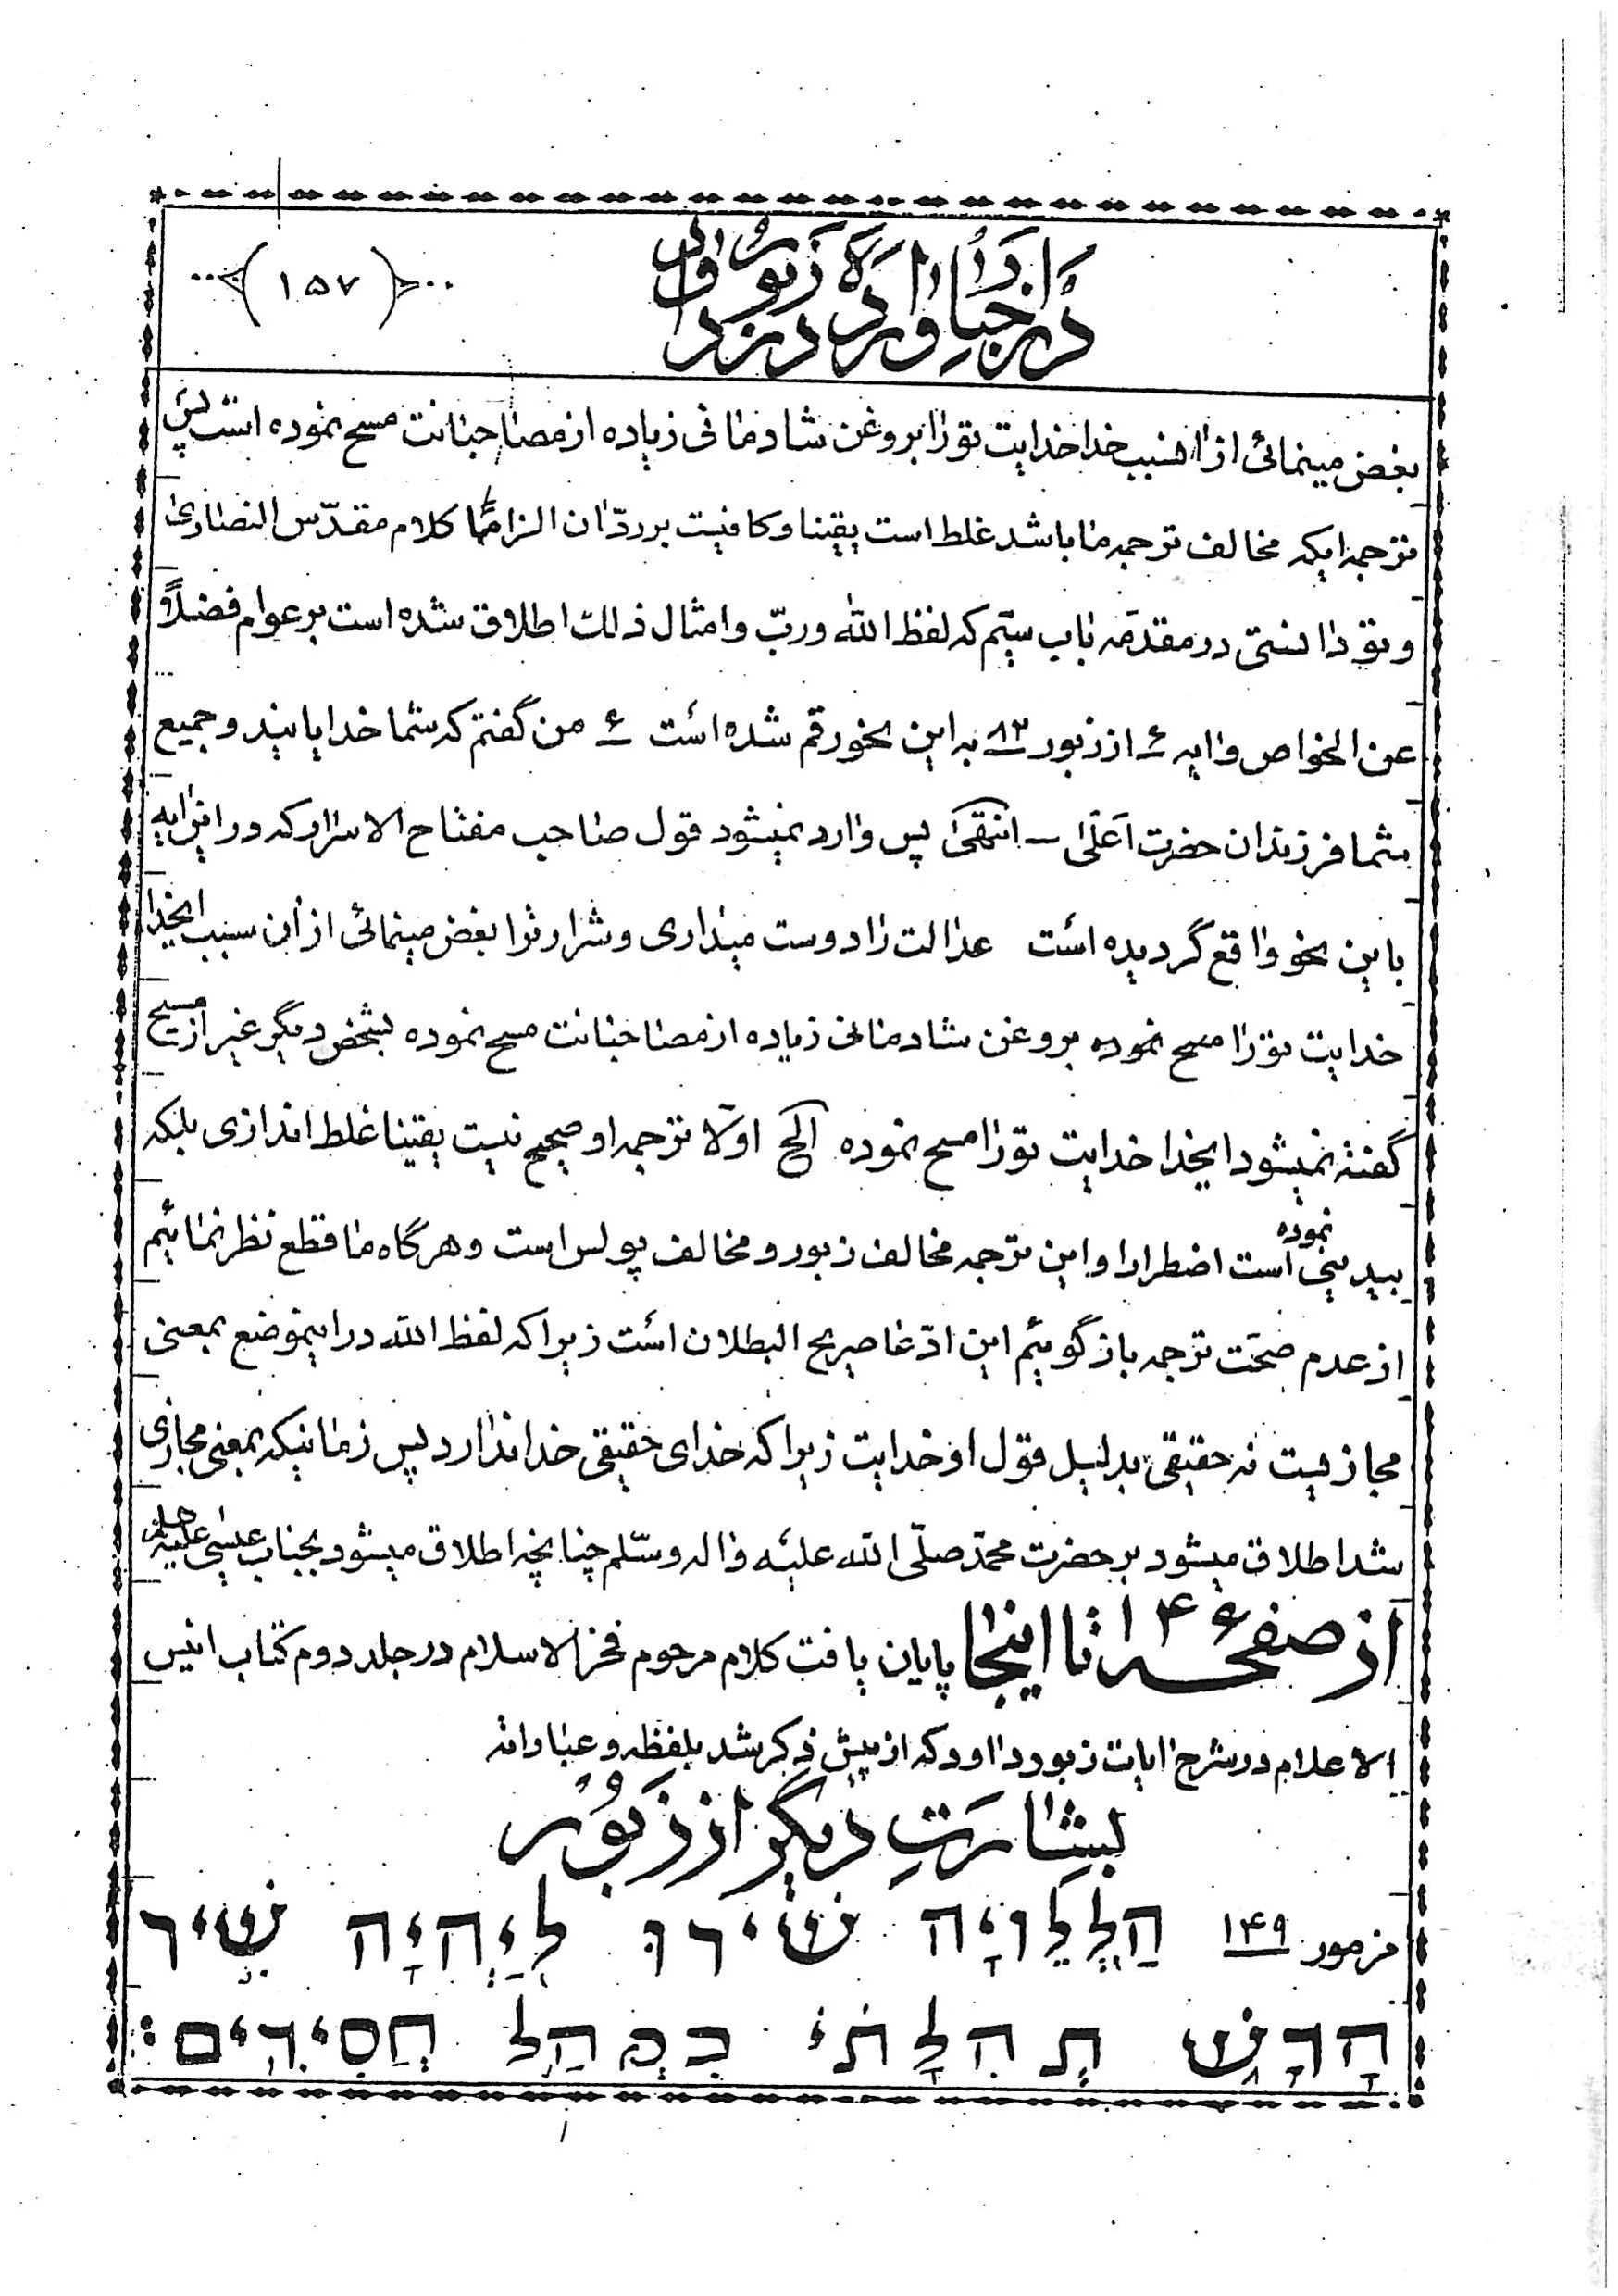 در اخبار وارده در زبور داود
(۱۵۷)
بغض مینمائی از انسبب خدا خدایت تو را بروغن شادمانی زیاده از مصاحبانت مسح نموده است پس
ترجمه ایکه مخالف ترجمه ما باشد غلط است یقینا و کافیست بر ردّ ان الزاما کلام مقدّس النصاری
و تو دانستی در مقدّمه باب سیّم که لفظ الله و ربّ و امثال ذلک اطلاق شده است بر عوام فضلاً
عن الخواص و ایه ۶ از زبور ۸۲ به این نحو رقم شده است ۶ من گفتم که شما خدایانید و جمیع
شما فرزندان حضرت اعلی - انتهی پس وارد نمیشود قول صاحب مفتاح الاسرار که در این ایه
باین نحو واقع گردیده است عدالت را دوست میداری و شرارترا بغض مینمائی از این سبب ایخدا
خدایت تو را مسح نموده بروغن شادمانی زیاده از مصاحبانت مسح نموده بشخص دیگر غیر از مسیح
گفته نمیشود ایخدا خدایت تو را مسح نموده الخ اولا ترجمه او صحیح نیست یقینا غلط اندازی بلکه
بیدینی نموده است اضطرارا و این ترجمه مخالف زبور و مخالف پولس است و هرگاه ما قطع نظر نمائیم
از عدم صحّت ترجمه باز گوئیم این ادّعا صریح البطلان است زیرا که لفظ الله در اینموضع بمعنی
مجازیست نه حقیقی بدلیل قول او خدایت زیرا که خدای حقیقی خدا ندارد پس زمانیکه بمعنی مجازی
شد اطلاق میشود بر حضرت محمّد صلّی الله علیه واله وسّلم چنانچه اطلاق میشود بجناب عیسی علیه
از صفحه ۱۴۶ تا اینجا پایان یافت کلام مرحوم فخر الاسلام در جلد دوم کتاب انیس
الاعلام در شرح ایات زبور داود که از پیش ذکر شد بلفظه و عباراته
بشارت دیگر از زبور
مزمور ۱۴۹ הַלְלוּיָהּ שִׁירוּ לַיְהיָה שִׁיר
חָדָשׁ תְהִלָתוֹ בִּקְהַל חֲסִידִים: